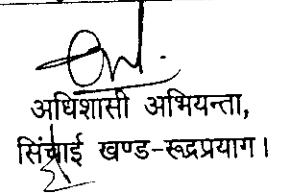 अधिशासी अभियन्ता,
सिंचाई खण्ड-रूद्रप्रयाग।